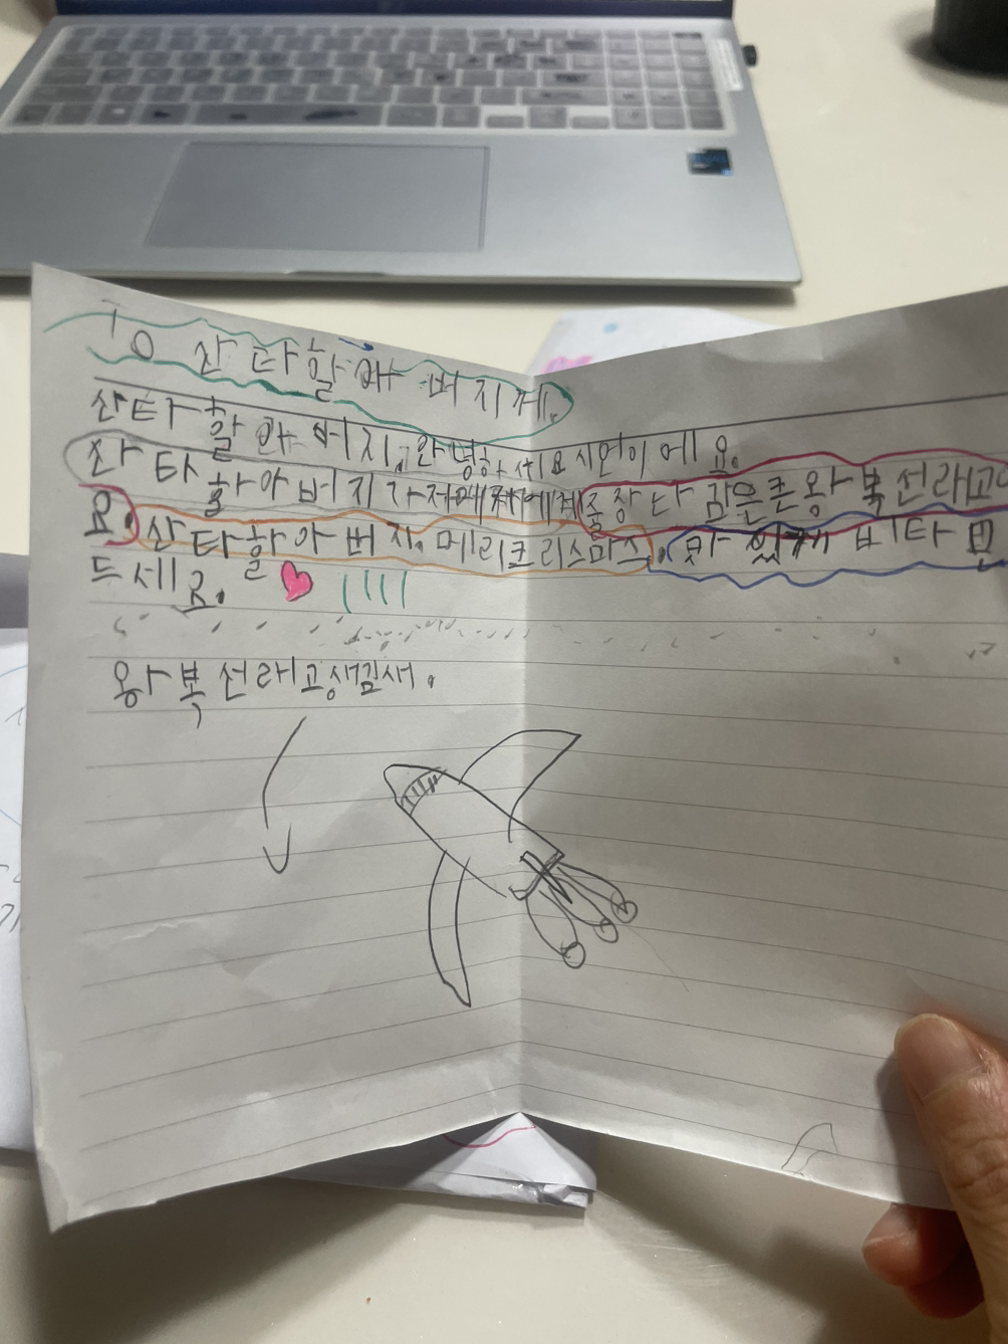 To 산타할아버지께.
산타할아버지, 안녕하세요 시언이에요.
산타할아버지가 저에게 줄 장난감은 큰 왕복선 라고
요. 산타할아버지. 메리크리스마스. 맛있게 비타민
드세요.
왕복선 라고 생김새.